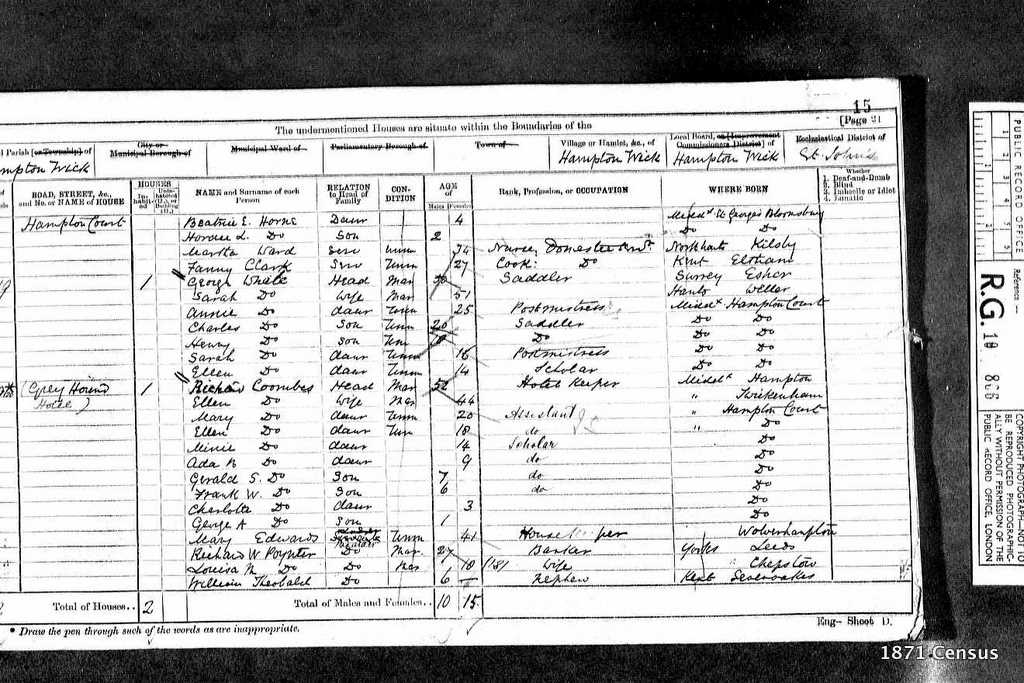 15
[Page 21
The undermentioned Houses are situate within the Boundaries of the
Parish [or Township] of
City or Municipal Borough of
Municipal Ward of
Parliamentary Borough of
Town of
Village or Hamlet, &c., of
Local Board, or [Improvement Commissioners District] of
Ecclesiastical District of
Hampton Wick Hampton Wick St. John's
ROAD, STREET, &c., and No. or NAME of HOUSE
HOUSES
NAME and Surname of each Person
RELATION to Head of Family
CONDITION
AGE of
Males Females
Rank, Profession, or OCCUPATION
WHERE BORN
Whether
1. Deaf-and-Dumb
2. Blind
3. Imbecile or Idiot
4. Lunatic
Hampton Court Beatrice E. Horne Daur 4 Middx St George's Bloomsbury
Horace L. Do Son 2 Do Do
Martha Ward Serv Unm 34 Nurse, Domestic Kilsby
Fanny Clark Serv Unm 27 Cook Do Kent Eltham
1 George White Head Mar Saddler Surrey Esher
Sarah Do Wife Mar 51 Hants
Annie Do daur Unm 25 Postmistress Middx Hampton Court
Charles Do Son Unm 20 Saddler Do Do
Henry Do Son Unm Do Do Do
Sarah Do daur Unm 16 Postmistress Do Do
Ellen Do daur Unm 14 Scholar Do Do
(Grey Hound 1 Richard Coombes Head Mar 52 Hotel Keeper Middx Hampton
Hotel) Ellen Do Wife Mar 44 " Twickenham
Mary Do daur Unm 20 Assistant " Hampton Court
Ellen Do daur Unm 18 do " Do
Minie Do daur 14 Scholar Do
Ada Do daur 9 do Do
Gerald S. Do Son 7 do Do
Frank W. Do Son 6 do Do
Charlotte Do daur 3 Do
George A Do Son 1 Do
Mary Edwards Unm 41 Wolverhampton
Richard W. Poynter Do Mar 27 Yorks Leeds
Louisa M. Do Do Mar wife Chepstow
William Theobald Do 6 Nephew Kent Sevenoaks
Total of Houses.. 2 Total of Males and Females.. 10 15
* Draw the pen through such of the words as are inappropriate.
Eng- Sheet D.
PUBLIC RECORD OFFICE
1 2 3 4 5
Reference:-
R.G. 10 866
COPYRIGHT PHOTOGRAPH—NOT TO
BE REPRODUCED PHOTOGRAPHIC-
ALLY WITHOUT PERMISSION OF THE
PUBLIC RECORD OFFICE, LONDON
1871 Census